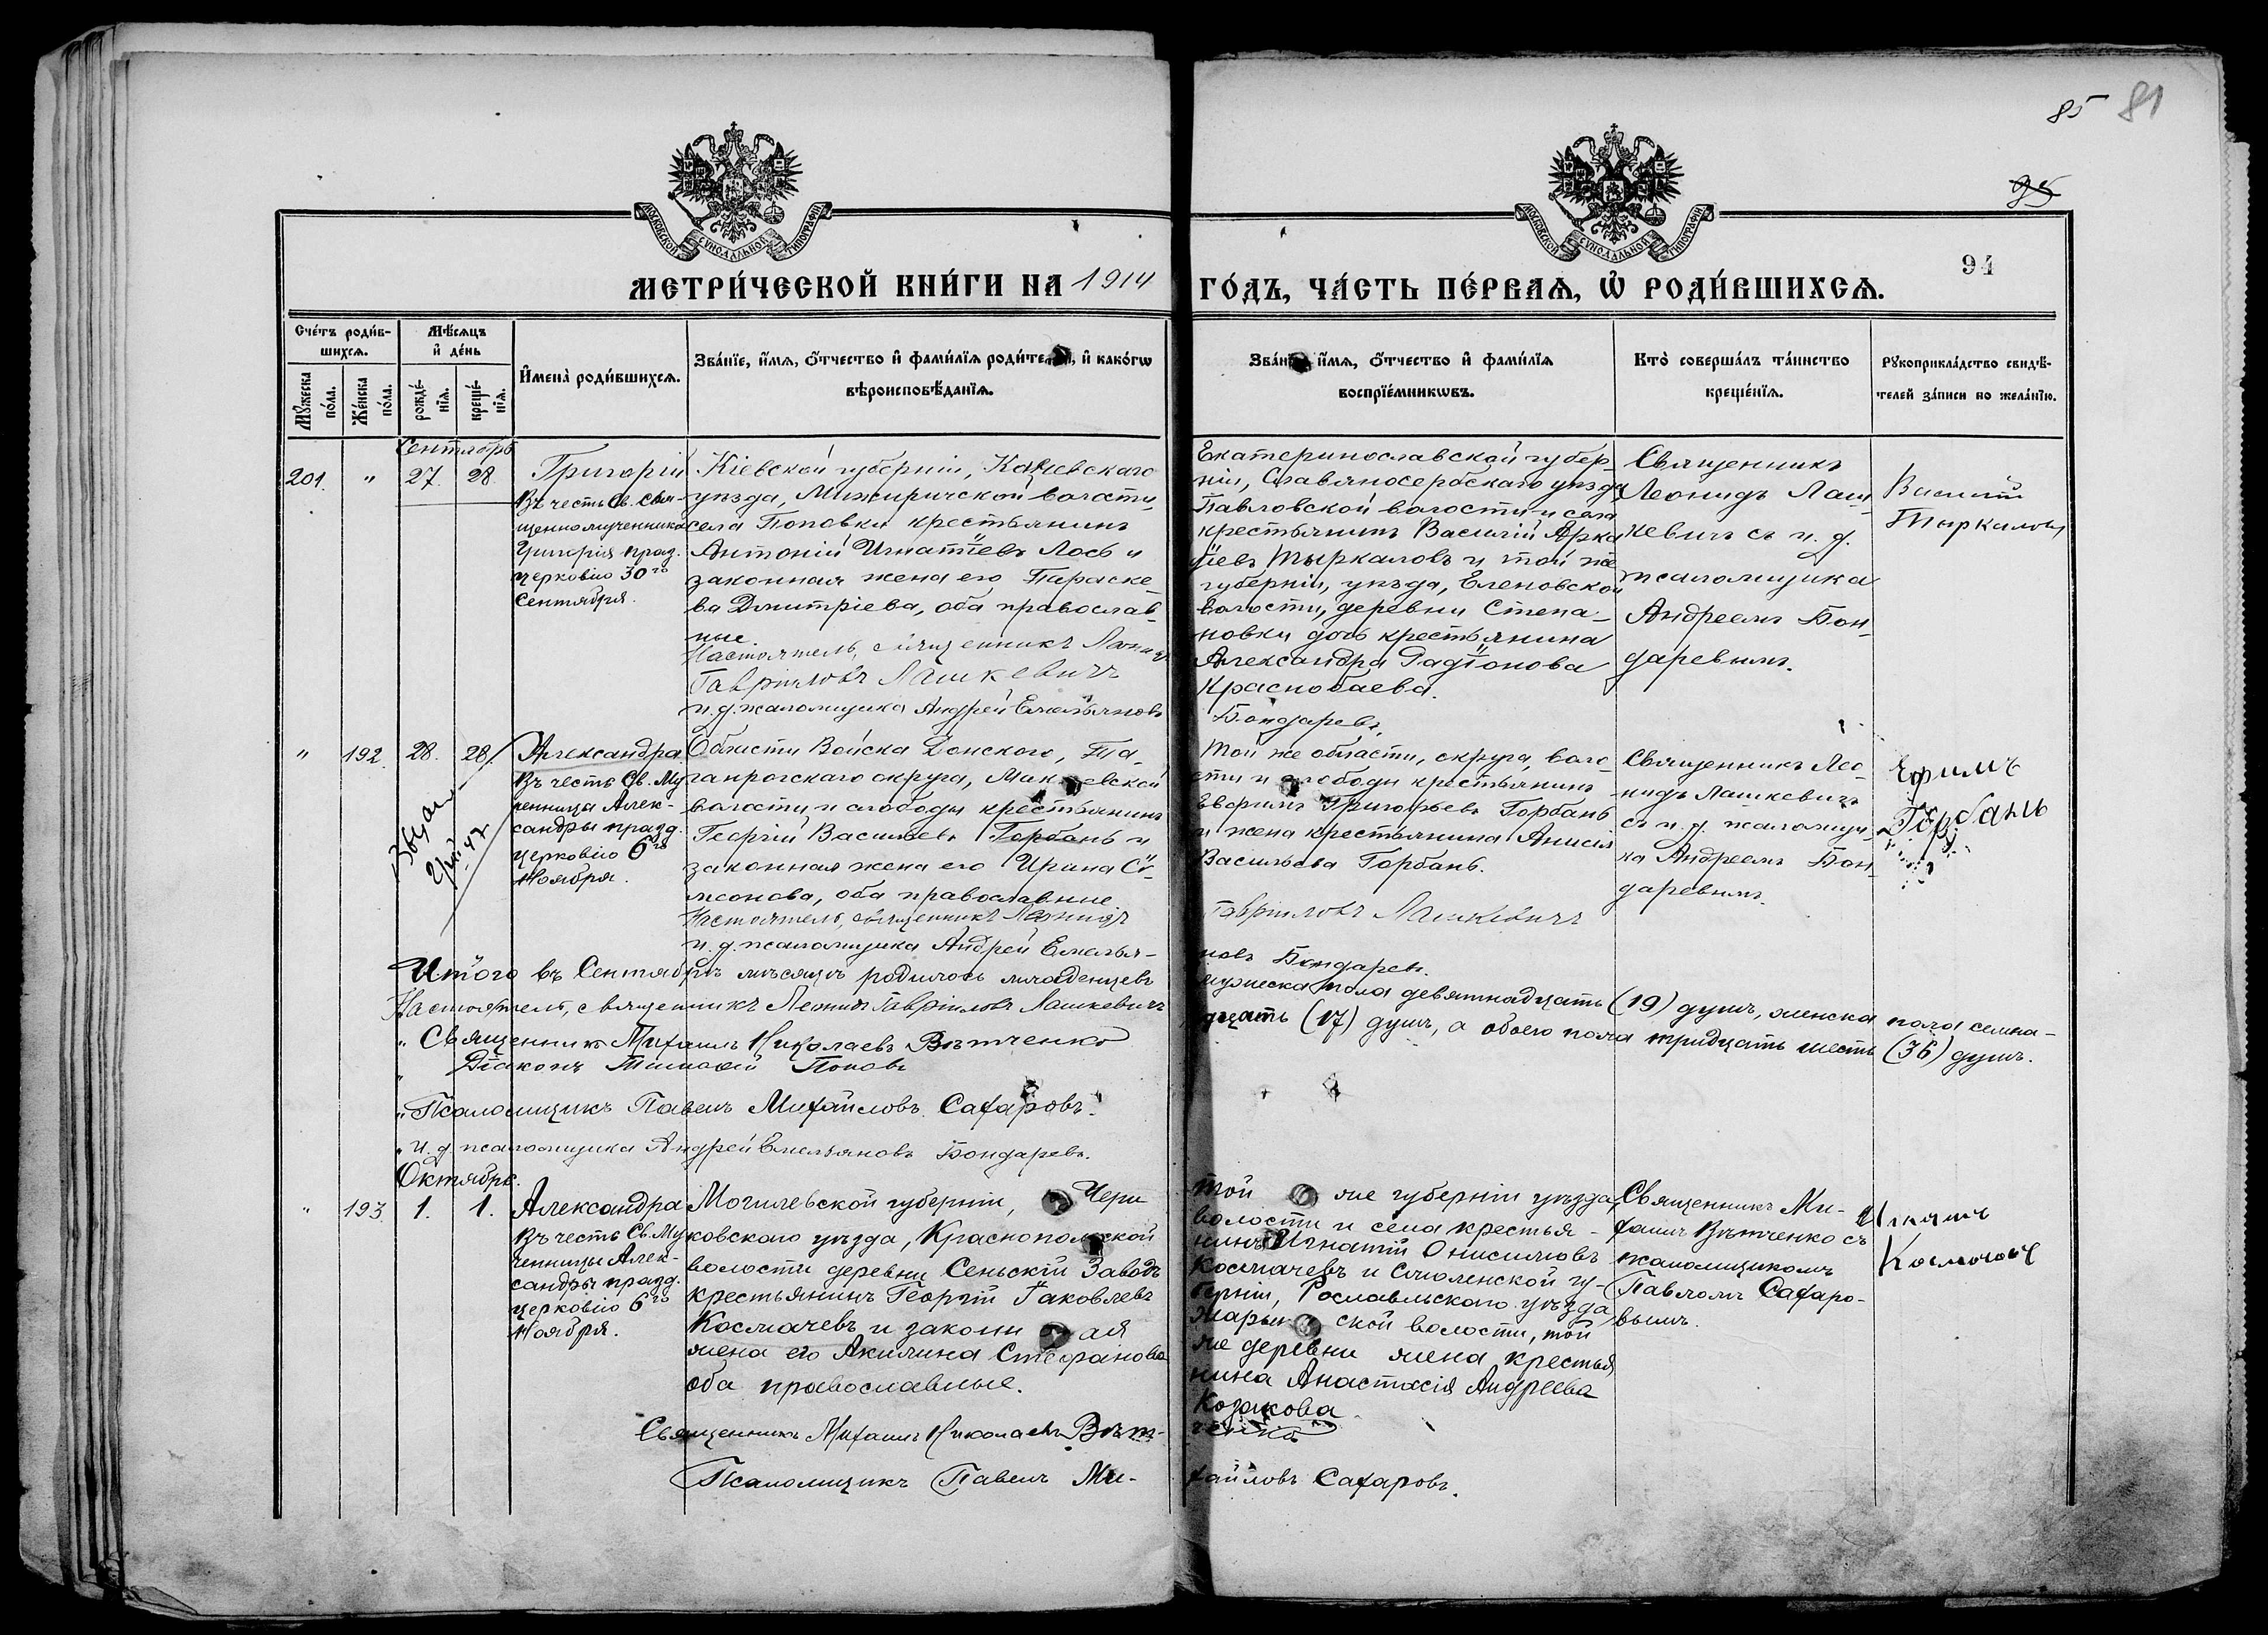 85 81
95
94
МОСКОВСКОЙ СѴНОДАЛЬНОЙ ТИПОГРАФІИ
МОСКОВСКОЙ СѴНОДАЛЬНОЙ ТИПОГРАФІИ
МЕТРИ́ЧЕСКОЙ КНИ́ГИ НА 1914
ГО́ДЪ, ЧА́СТЬ ПЕ́РВАѦ, Ѡ҆ РОДИ́ВШИХСѦ.
Сче́тъ роди́в-
шихсѧ.
Мꙋ́жеска
по́ла.
Же́нска
по́ла.
Мѣ́сѧцъ
и҆ де́нь
рожде́-
нїѧ.
креще́-
нїѧ.
И҆мена̀ роди́вшихсѧ.
Зва́нїе, и҆́мѧ, ѻ҆́тчество и҆ фами́лїѧ роди́телей, и҆ како́гѡ
вѣроисповѣ́данїѧ.
Зва́нїе, и҆́мѧ, ѻ҆́тчество и҆ фами́лїѧ
воспрїе́мникѡвъ.
Кто̀ соверша́лъ та́инство
креще́нїѧ.
Рꙋкоприкла́дство свидѣ́-
телей за́писи по жела́нїю.
Сентябрь
201. " 27. 28.
Григорій
Въ честь Св. Свя-
щенномученика
Григорія празд.
церковію 30го
Сентября.
Кіевской губерніи, Каневскаго
уѣзда, Межиричской волости,
села Поповки крестьянинъ
Антоній Игнатіевъ Лось и
законная жена его Параске-
ва Дмитріева, оба православ-
ные.
Настоятель, священникъ Леонидъ
Гавріиловъ Лашкевичъ
и.д. псаломщика Андрей Емельяновъ
Екатеринославской губер-
ніи, Славяносербскаго уѣзда
Павловской волости и села
крестьянинъ Василій Арка
діевъ Тыркаловъ и той же
губерніи, уѣзда, Еленовской
волости, деревни Степа-
новки дочь крестьянина
Александра Радіонова
Краснобаева.
Бондаревъ.
Священникъ
Леонидъ Лаш-
кевичъ съ и. д.
псаломщика
Андреемъ Бон-
даревымъ.
Василій
Тыркаловъ
" 192. 28. 28.
Александра
Въ честь Св. Му
ченницы Алек-
сандры празд.
церковію 6го
Ноября.
Области Войска Донского, Та-
ганрогскаго округа, Макеевской
волости и слободы крестьянинъ
Георгій Васильевъ Горбань и
законная жена его Ирина Си-
меонова, оба православные
Настоятель, священникъ Леонидъ
и. д. псаломщика Андрей Емелья-
Той же области, округа, воло-
сти и слободы крестьянинъ
Евфимъ Григорьевъ Горбань
и жена крестьянина Анисія
Васильева Горбань.
Гавріиловъ Лашкевичъ
новъ Бондаревъ.
Священникъ Лео-
нидъ Лашкевичъ
съ и. д. псаломщи-
ка Андреемъ Бон-
даревымъ.
Ефимъ
Горбань
Итого въ Сентябрѣ мѣсяцѣ родилось младенцевъ
мужеска пола девятнадцать (19) душъ, женска пола семна-
дцать (17) душъ, а обоего пола тридцать шесть (36) душъ.
Настоятель, священникъ Леонидъ Гавріиловъ Лашкевичъ
" Священникъ Михаилъ Николаевъ Вѣтченко
" Діаконъ Тимофей Поповъ
" Псаломщикъ Павелъ Михайловъ Сафаровъ.
" И. д. псаломщика Андрей Емельяновъ Бондаревъ.
Октябрь.
" 193. 1. 1.
Александра
Въ честь Св. Му
ченницы Алек-
сандры празд.
церковію 6го
Ноября.
Могилевской губерніи, Чери
ковскаго уѣзда, Краснопольской
волости деревни Сеньскій Заводъ
крестьянинъ Георгій Іаковлевъ
Космачевъ и законн ая
жена его Акилина Стефанова
оба православные.
Священникъ Михаилъ Николаевъ Вѣт-
Псаломщикъ Павелъ Ми-
Той же губерніи уѣзда,
волости и села крестья-
нинъ Игнатій Онисимовъ
Космачевъ и Смоленской гу-
берніи, Рославльскаго уѣзда
Жарын ской волости, той
же деревни жена крестья
нина Анастасія Андреева
Козакова
ченко
хайловъ Сафаровъ.
Священникъ Ми-
хаилъ Вѣтченко съ
псаломщикомъ
Павломъ Сафаро-
вымъ.
Игнатъ
Космочовъ